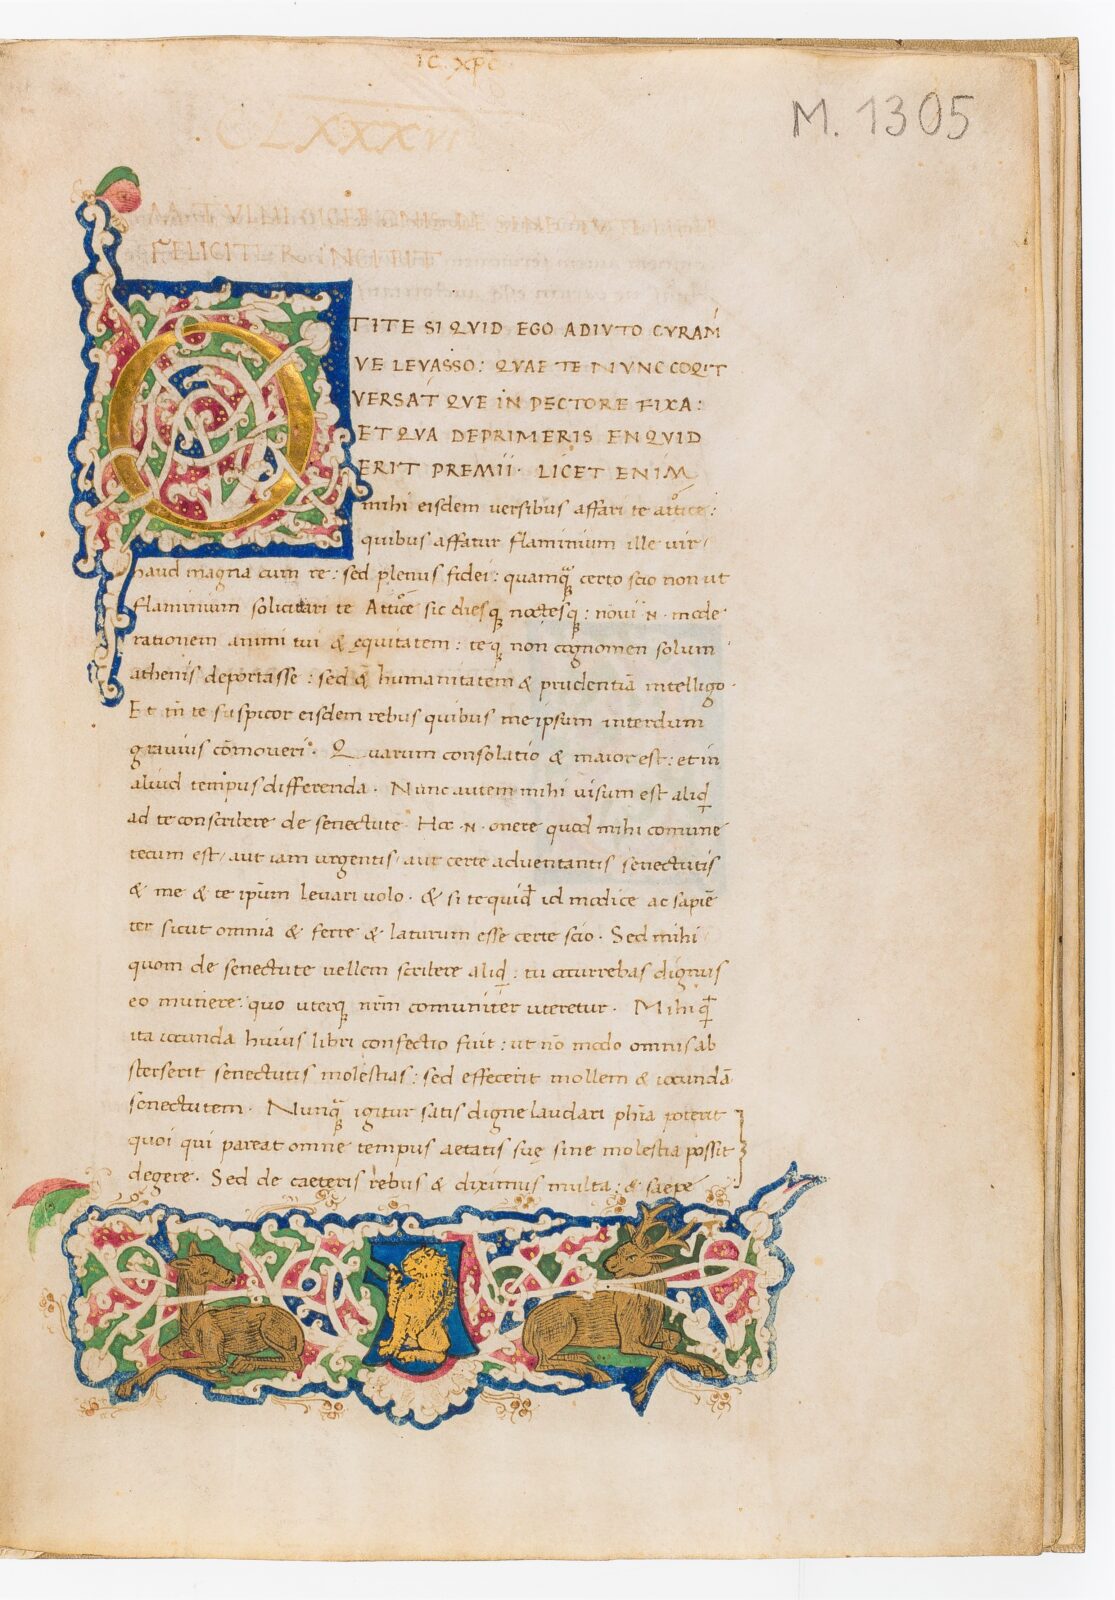 IC XPC
M. 1305
CLXXXVI
FELICITER INCIPIT
O TITE SI QVID EGO ADIVTO CVRAM
VE LEVASSO: QVAE TE NVNC COQIT
VERSAT QVE IN PECTORE FIXA:
ET QVA DEPRIMERIS EN QVID
ERIT PREMII. LICET ENIM
mihi eisdem versibus affari te attice:
quibus affatur flaminium ille vir
haud magna cum re: sed plenus fidei: quamqȝ certo scio non ut
flaminium solicitari te Attice sic diesqȝ noctesqȝ: novi .N. mode
rationem animi tui & equitatem: teqȝ non cognomen solum
athenis deportasse: sed & humanitatem & prudentiā intelligo.
Et tn̄ te suspicor eisdem rebus quibus me ipsum interdum
gravius cōmoveri. Quarum consolatio & maior est: et in
aliud tempus differenda. Nunc autem mihi visum est aliqd
ad te conscribere de senectute. Hoc .N. onere quod mihi comune
tecum est/ aut iam urgentis/ aut certe adventantis senectutis
& me & te ipsum levari volo. & si te quidē id modice ac sapiē
ter sicut omnia & ferre & laturum esse certe scio. Sed mihi
quom de senectute vellem scribere aliqd: tu occurrebas dignus
eo munere: quo uterqȝ nr̄m comuniter uteretur. Mihi qd
ita iocunda huius libri confectio fuit: ut nō modo omnis ab
sterserit senectutis molestias: sed effecerit mollem & iocundā
senectutem. Nunqȝ igitur satis digne laudari phīa poterit
quoi qui pareat omne tempus aetatis suę sine molestia possit
degere. Sed de caeteris rebus & diximus multa: & saepe